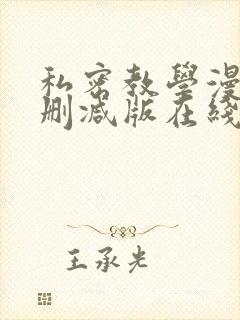 私密教學漫
刪減版在綫
王承光